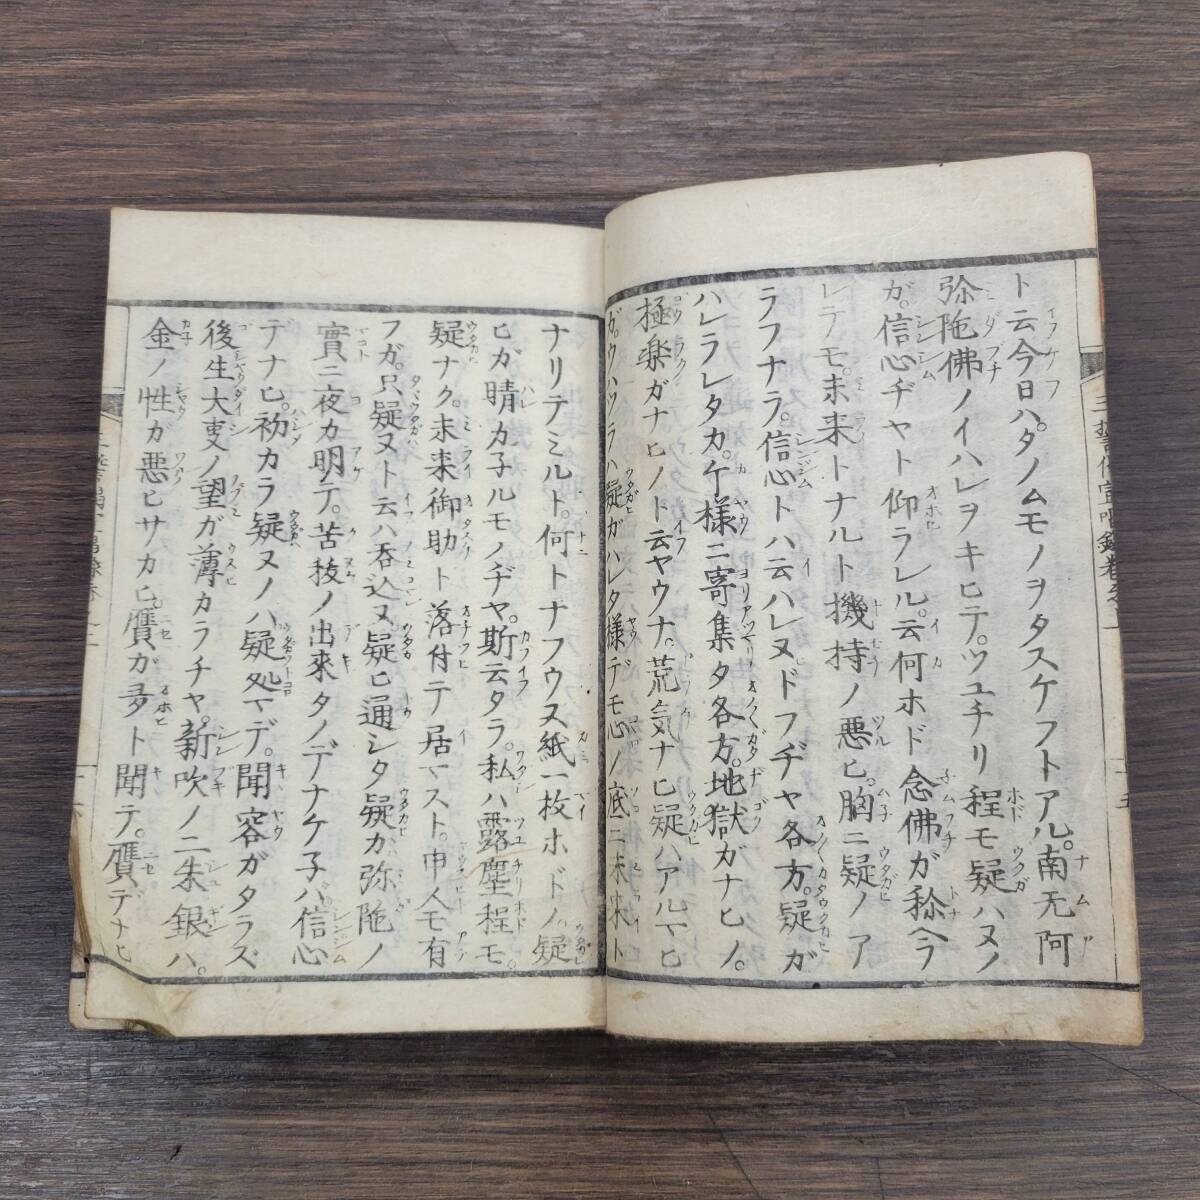 ト云今日ハ。タノムモノヲタスケフトアル。南无阿
弥陁佛ノイハレヲキヒテ。ツユチリ程モ疑ハヌノ
ガ。信心ヂヤト仰ラレル。云何ホド念佛ガ称ヘラ
レテモ。未来トナルト機持ノ悪ヒ。胸ニ疑ノア
ラフナラ。信心トハ云ハレヌドフヂヤ各方。疑ガ
ハレラレタカ。ケ様ニ寄集タ各方。地獄ガナヒノ。
極楽ガナヒノト云ヤウナ。荒気ナヒ疑ハアルマヒ
ガ。ウハツラハ疑ガハレタ様デモ心ノ底ニ未来ト
ナリテミルト。何トナフウス紙一枚ホドノ疑
ヒガ晴カ子ルモノヂヤ。斯云タラ。私ハ露塵程モ。
疑ナク。未来御助ト落付テ居マスト。申人モ有
フガ。只疑ヌト云ハ呑込ヌ疑ヒ通シタ疑カ弥陁ノ
實ニ夜カ明テ。苦抜ノ出來タノデナケ子バ信心
デナヒ。初カラ疑ヌノハ疑処マデ。聞容ガタラズ
後生大叓ノ望ガ薄カラチヤ。新吹ノ二朱銀ハ。
金ノ性ガ悪ヒサカヒ贋ガ多ト聞テ。贋テナヒ